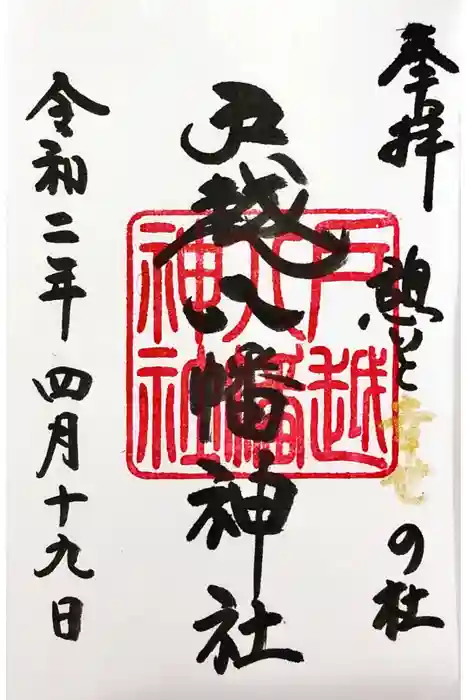 奉拝
憩いと の杜
戸越八幡神社
戸越
八幡
神社
令和二年四月十九日